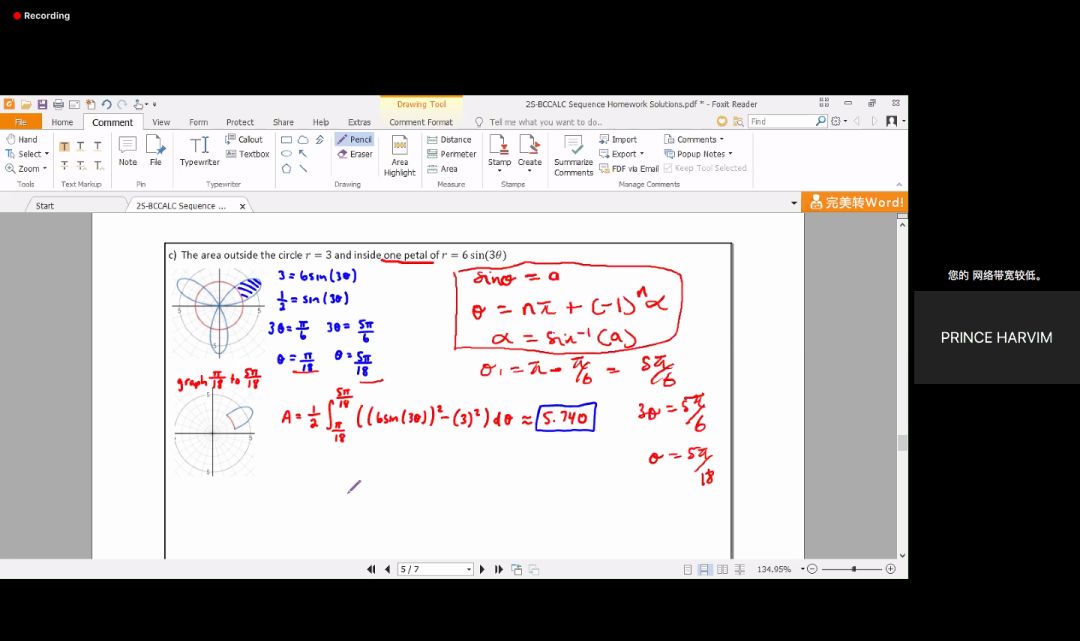 Recording
Drawing Tool
2S-BCCALC Sequence Homework Solutions.pdf * - Foxit Reader
File Home Comment View Form Protect Share Help Extras Comment Format Tell me what you want to do.. Find
Hand
Select
Zoom
Tools
Text Markup
Note
File
Pin
Typewriter
Callout
Textbox
Typewriter
Pencil
Eraser
Drawing
Area Highlight
Distance
Perimeter
Area
Measure
Stamp
Create
Stamps
Summarize Comments
Import
Export
FDF via Email
Comments
Popup Notes
Keep Tool Selected
Manage Comments
Start
2S-BCCALC Sequence ... x
完美转Word!
c) The area outside the circle r = 3 and inside one petal of r = 6 sin(3θ)
3 = 6sin(3θ)
1/2 = sin(3θ)
3θ = π/6 3θ = 5π/6
θ = π/18 θ = 5π/18
graph π/18 to 5π/18
A = 1/2 ∫ π/18 5π/18 ((6sin(3θ))² - (3)²) dθ ≈ 5.740
sinθ = a
θ = nπ + (-1)ⁿα
α = sin⁻¹(a)
θ₁ = π - π/6 = 5π/6
3θ = 5π/6
θ = 5π/18
您的 网络带宽较低。
PRINCE HARVIM
5 / 7
134.95%